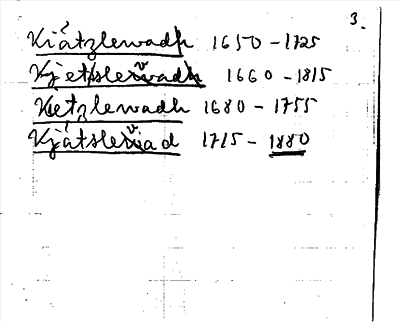 3.
Kiátzlewadh 1650-1725
Kjetslevadh 1660-1815
Kietzlewadh 1680-1755
Kjátslevad 1715-1880